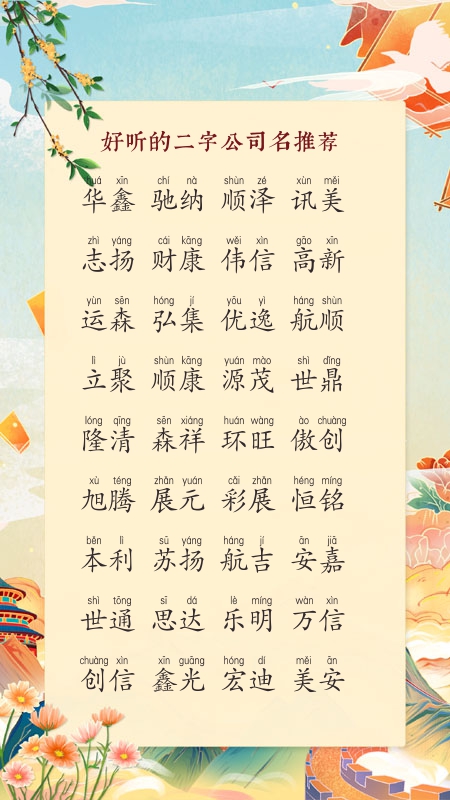 好听的二字公司名推荐
huá xīn chí nà shùn zé xùn měi
华鑫 驰纳 顺泽 讯美
zhì yáng cái kāng wěi xìn gāo xīn
志扬 财康 伟信 高新
yùn sēn hóng jí yōu yì háng shùn
运森 弘集 优逸 航顺
lì jù shùn kāng yuán mào shì dǐng
立聚 顺康 源茂 世鼎
lóng qīng sēn xiáng huán wàng ào chuàng
隆清 森祥 环旺 傲创
xù téng zhǎn yuán cǎi zhǎn héng míng
旭腾 展元 彩展 恒铭
běn lì sū yáng háng jí ān jiā
本利 苏扬 航吉 安嘉
shì tōng sī dá lè míng wàn xìn
世通 思达 乐明 万信
chuàng xìn xīn guāng hóng dí měi ān
创信 鑫光 宏迪 美安